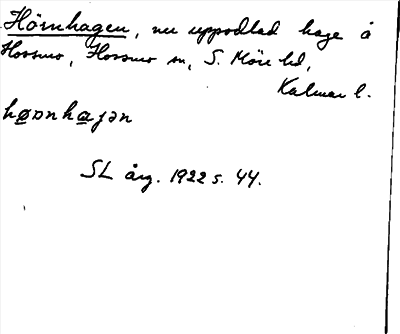 Hörnhagen, nu uppodlad hage å
Hossmo, Hossmo sn, S. Möre hd,
Kalmar l.
høɒnhajən
SL årg. 1922 s. 44.